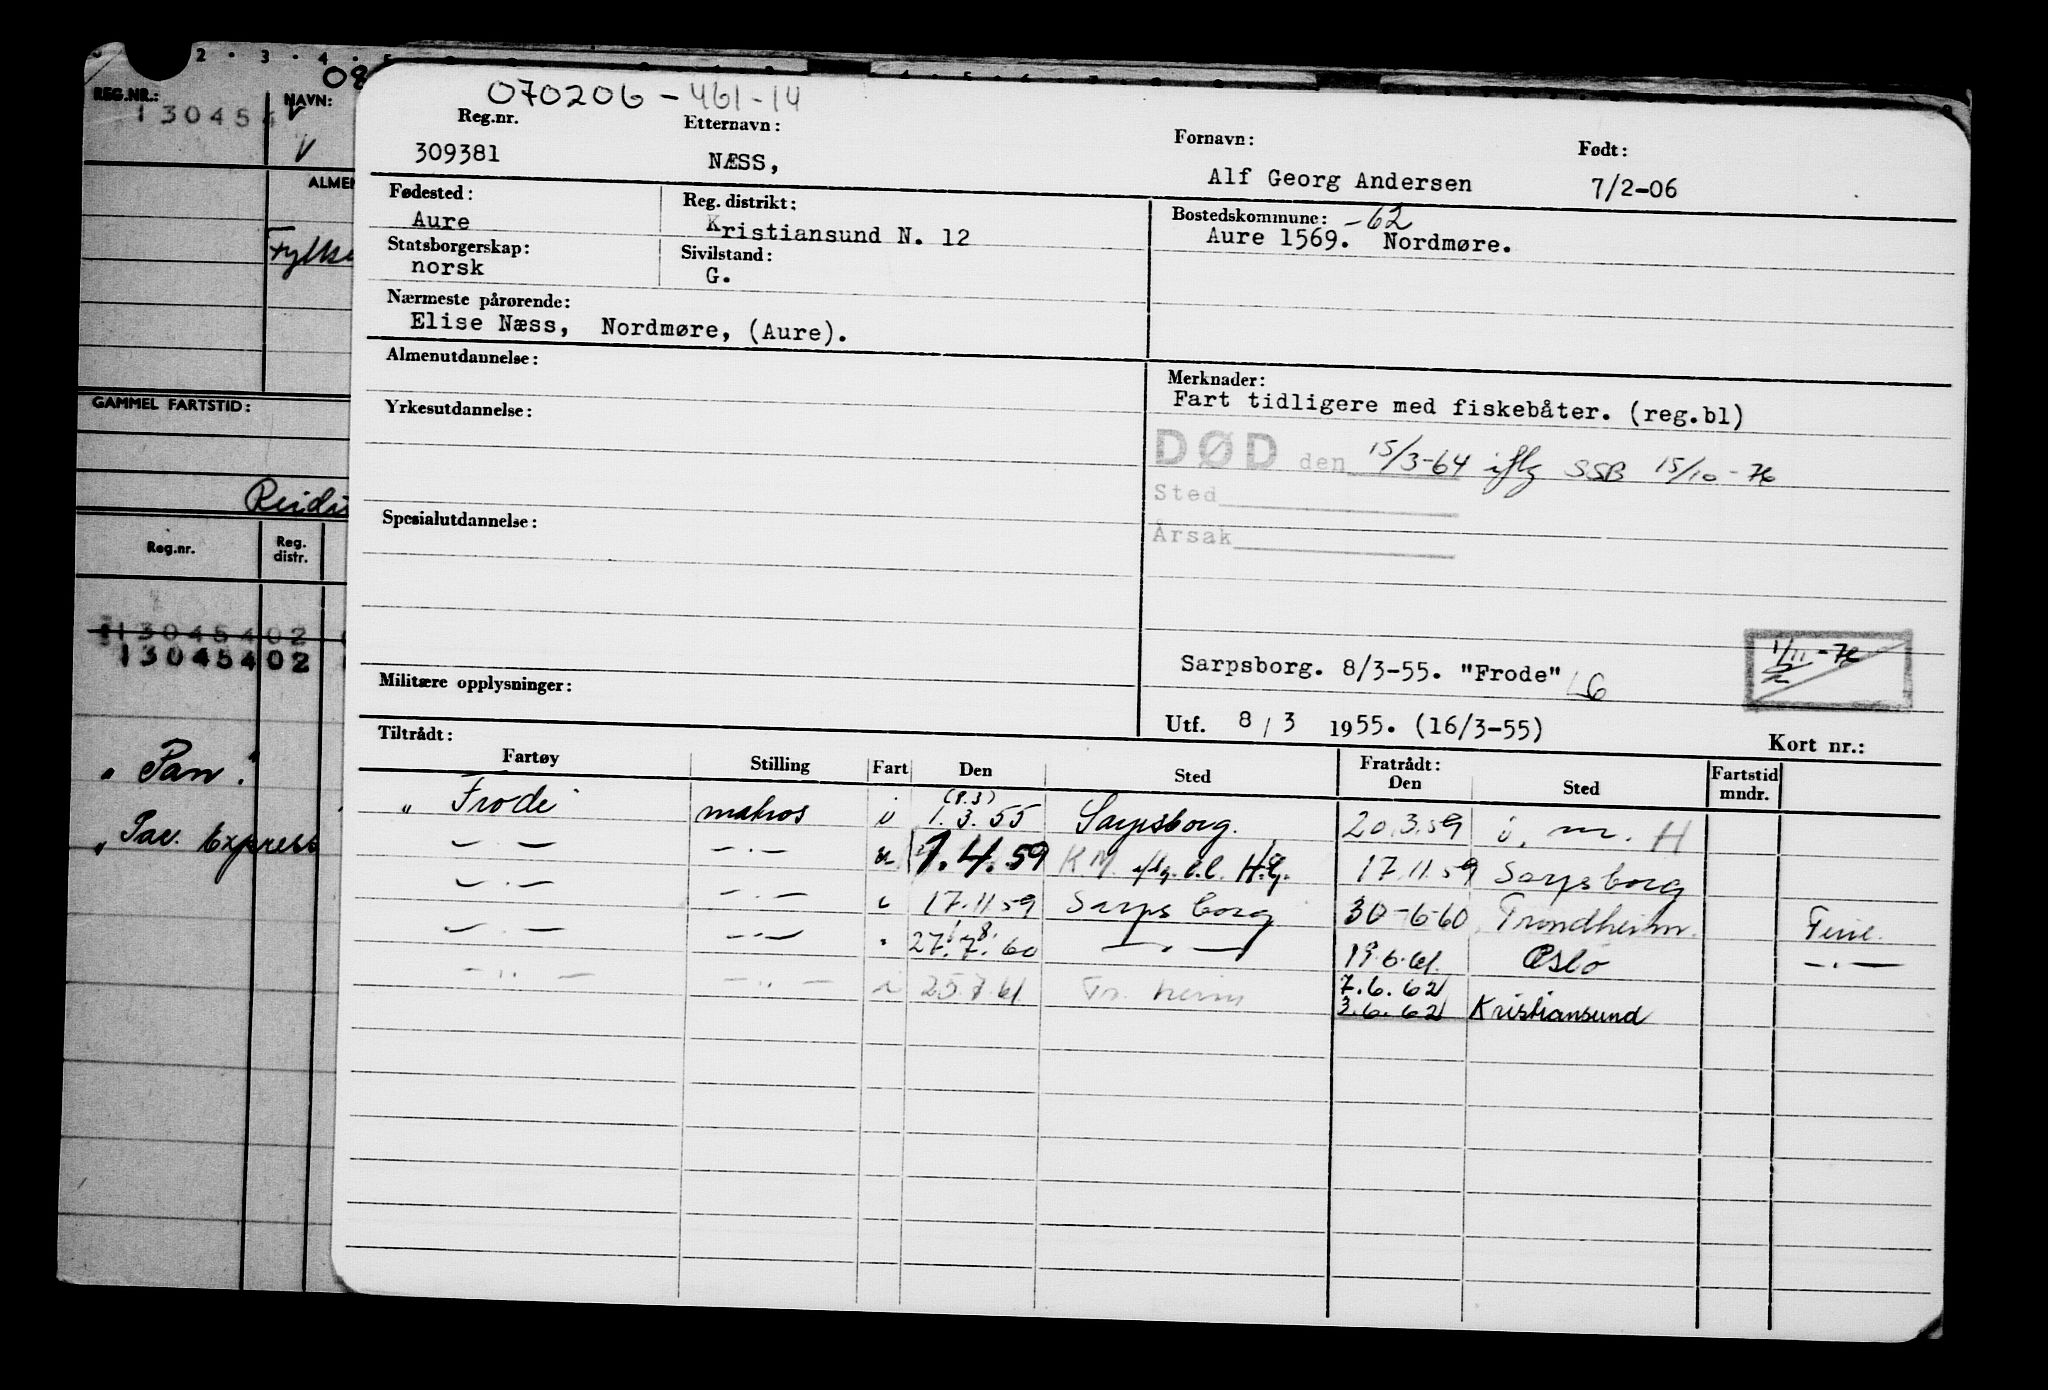 2 · 3 · 4 · 5
08
REG.NR.:
NAVN:
130454
V
V
ALMEN
Fylke
GAMMEL FARTSTID:
Reida
Reg.nr.
Reg. distr.
13045402
13045402
" Pan."
" Pac. Express
070206-461-14
Reg.nr. Etternavn: Fornavn: Født:
309381 NÆSS, Alf Georg Andersen 7/2-06
Fødested: Reg. distrikt: Bostedskommune: -62
Aure Kristiansund N. 12 Aure 1569. Nordmøre.
Statsborgerskap: Sivilstand:
norsk G.
Nærmeste pårørende:
Elise Næss, Nordmøre, (Aure).
Almenutdannelse:
Merknader:
Fart tidligere med fiskebåter. (reg.bl)
Yrkesutdannelse:
DØD den 15/3-64 iflg SSB 15/10-76
Sted
Årsak
Spesialutdannelse:
Sarpsborg. 8/3-55. "Frode"
1/11-76
Militære opplysninger:
Utf. 8/3 1955. (16/3-55)
Kort nr.:
Tiltrådt: Fratrådt:
Fartøy Stilling Fart Den Sted Den Sted Fartstid mndr.
" Frode matros i (8.3) 1.3.55 Sarpsborg. 20.3.59 i, m. H
— . — — . — 1.4.59 K.M. iflg. b.l. H.G. 17.11.59 Sarpsborg
— . — — . — i 17.11.59 Sarpsborg 30-6-60 Trondheim. Ferie.
— . — — . — 27.7.60 — . — 19.6.61. Oslo — . —
— " — — " — i 25.7.61 Tr. heim 7.6.62
3.6.62 Kristiansund